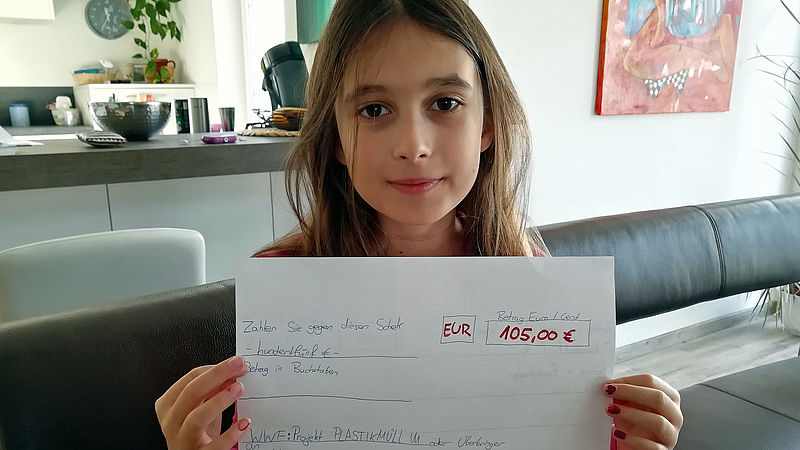 Betrag Euro / Cent
Zahlen Sie gegen diesen Scheck EUR 105,00 €
- hundertfünf € -
Betrag in Buchstaben
WWF: Projekt PLASTIKMÜLL IM oder Überbringer